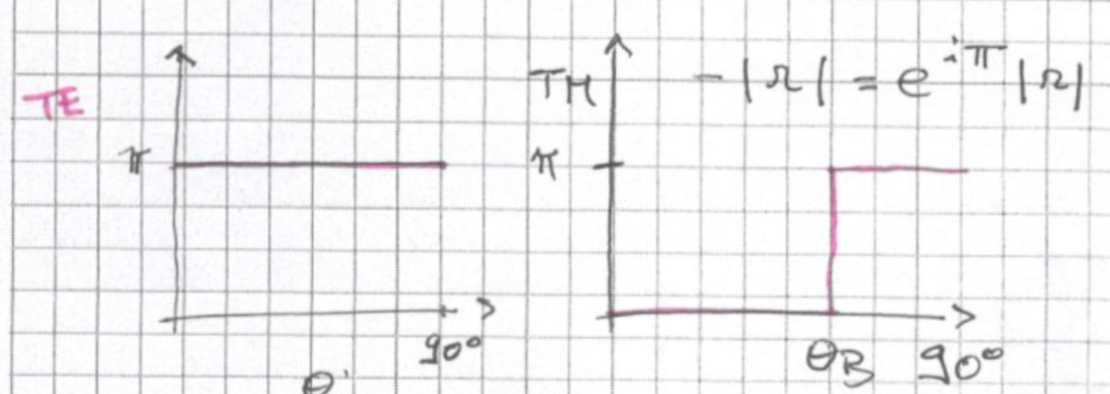 TE
π
90°
θ
TM -|r| = e^{iπ} |r|
π
θB 90°